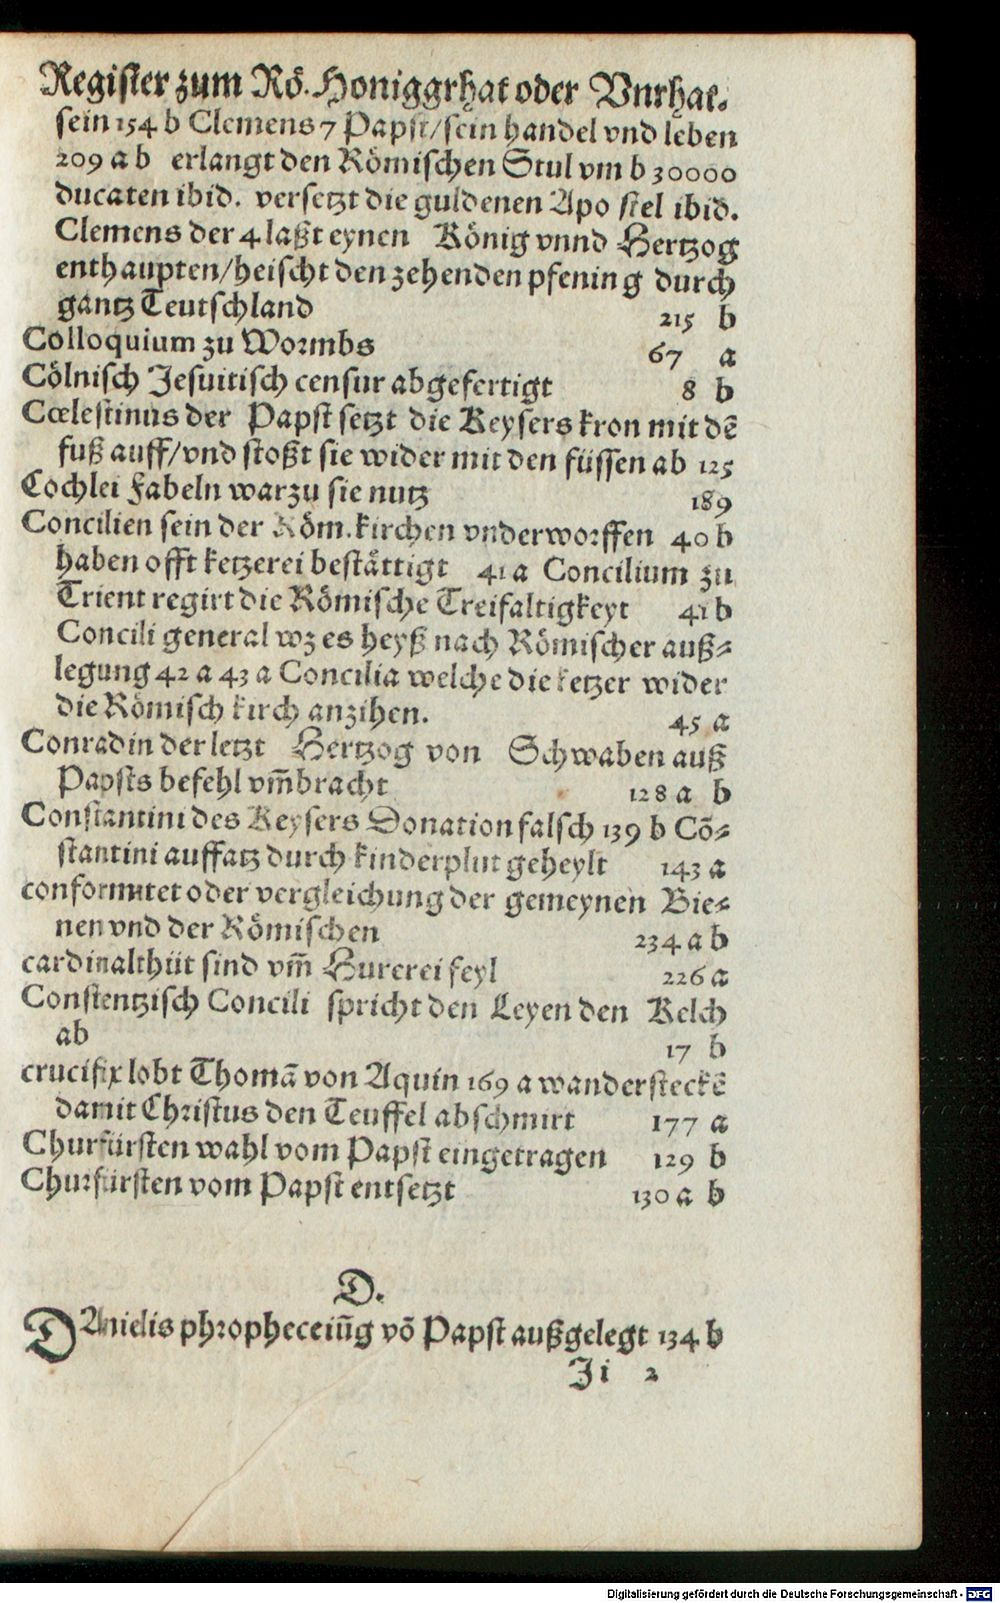 Register zum Rö. Honiggrhat oder Vnrhat.
sein 154 b Clemens 7 Papst/sein handel vnd leben
209 a b erlangt den Römischen Stul vm b 30000
ducaten ibid. versetzt die guldenen Apo stel ibid.
Clemens der 4 laßt eynen König vnnd Hertzog
enthaupten/heischt den zehenden pfening durch
gantz Teutschland 215 b
Colloquium zu Wormbs 67 a
Cölnisch Jesuitisch censur abgefertigt 8 b
Cœlestinus der Papst setzt die Keysers kron mit dē
fuß auff/vnd stoßt sie wider mit den füssen ab 125
Cochlei Fabeln warzu sie nutz 189
Concilien sein der Röm. kirchen vnderworffen 40 b
haben offt ketzerei bestättigt 41 a Concilium zu
Trient regirt die Römische Treifaltigkeyt 41 b
Concili general wz es heyß nach Römischer auß-
legung 42 a 43 a Concilia welche die ketzer wider
die Römisch kirch anzihen. 45 a
Conradin der letzt Hertzog von Schwaben auß
Papsts befehl vm̄bracht 128 a b
Constantini des Keysers Donation falsch 139 b Cō-
stantini auffatz durch kinderplut geheylt 143 a
conformitet oder vergleichung der gemeynen Bie-
nen vnd der Römischen 234 a b
cardinalthüt sind vm̄ Hurerei feyl 226 a
Constentzisch Concili spricht den Leyen den Kelch
ab 17 b
crucifix lobt Thomā von Aquin 169 a wandersteckē
damit Christus den Teuffel abschmirt 177 a
Churfürsten wahl vom Papst eingetragen 129 b
Churfürsten vom Papst entsetzt 130 a b
D.
DAnielis phropheceiūg vō Papst außgelegt 134 b
Ji 2
Digitalisierung gefördert durch die Deutsche Forschungsgemeinschaft - DFG